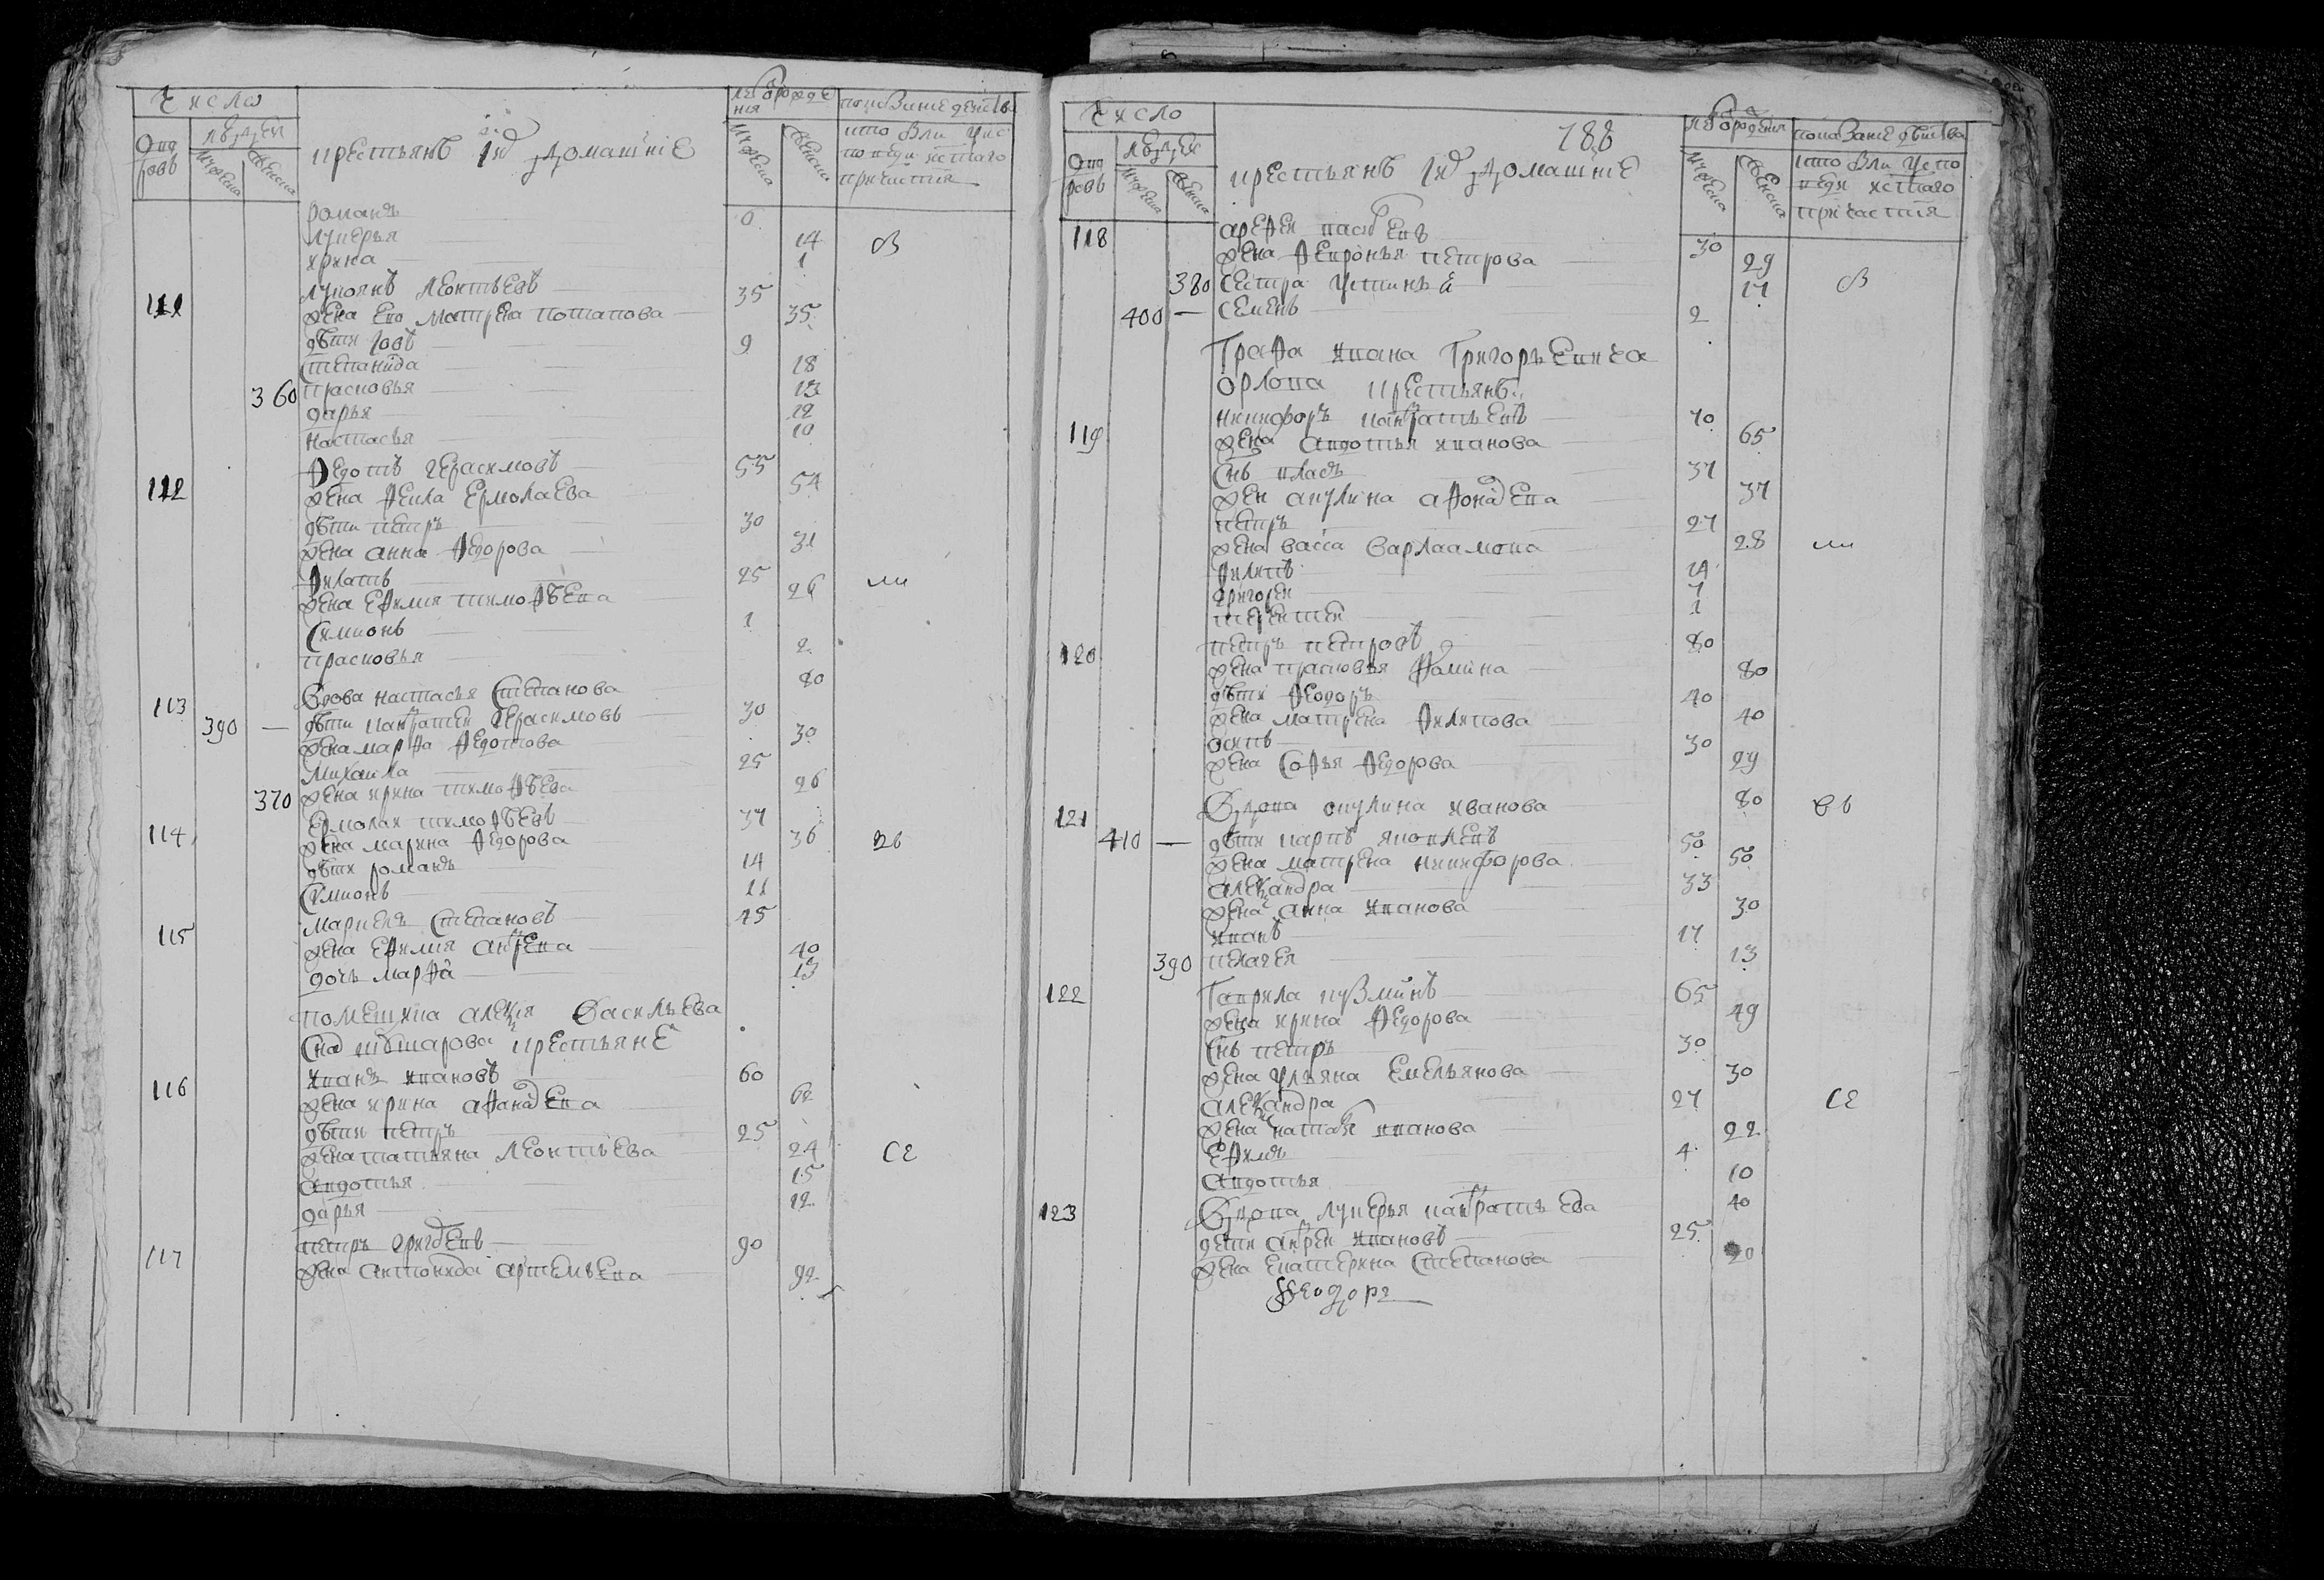 Число
Дворовъ
людей
мужеска
женска
крестьянъ и ихъ домашние
лет от рождения
мужеска
женска
показание действа
кто был у исповеди и святаго причастия
романъ 6
лукерья 14 св
ирина 1
111 лукоянъ леонтьевъ 35
жена ево матрена потапова 35
дѣти иовъ 9
степанида 18
360 прасковья 13
дарья 12
настасья 10
112 Федотъ герасимовъ 55
жена Фекла ермолаева 54
дѣти петръ 30
жена анна Федорова 31
Филатъ 25
жена ефимия тимофѣева 26
симионъ 1
прасковья 2
113 вдова настасья степанова 80
390 — дѣти панкратей герасимовъ 30
жена марфа Федотова 30
михайла 25
370 жена ирина тимофѣева 26
114 ермолай тимофѣевъ 37
жена марина Федорова 36
дѣти романъ 14
симионъ 11
115 маркелъ степановъ 45
жена ефимия андреева 40
дочь марфа 13
помещика алексея васильева
сна шѣшарова крестьяне
116 иванъ ивановъ 60
жена ирина афанасьева 62
дѣти петръ 25
жена татьяна леонтьева 24 се
авдотья 15
дарья 12
117 петръ григорьевъ 90
жена антонида артемьева 92
188
Число
Дворовъ
людей
мужеска
женска
крестьянъ и ихъ домашние
лет от рождения
мужеска
женска
показание действа
кто был у исповеди и святаго причастия
118 арефей васильевъ 30
жена Февронья петрова 29
380 сестра устинья 17 св
400 — семенъ 2
Графа ивана Григорьевича
орлова крестьянъ
119 никифоръ панкратьевъ 70
жена авдотья иванова 65
снъ власъ 37
жена акулина афонасьева 37
петръ 27
жена васса варлаамова 28
Филипъ 14
григорей 7
терентей 1
120 петръ петровъ 80
жена прасковья Фомина 80
дѣти Феодоръ 40
жена матрена Филипова 40
осипъ 30
жена софья Федорова 29
121 вдова акулина иванова 80
410 — дѣти карпъ яковлевъ 50
жена матрена никифорова 50
александра 33
жена анна иванова 30
иванъ 17
390 пелагея 13
122 Гаврила кузминъ 65
жена ирина Федорова 49
снъ петръ 30
жена ульяна емельянова 30
александра 27 се
жена наталья иванова 22
ефимъ 4
авдотья 10
123 вдова лукерья панкратьева 40
дети андрей ивановъ 25
жена екатерина степанова 20
Феодоръ